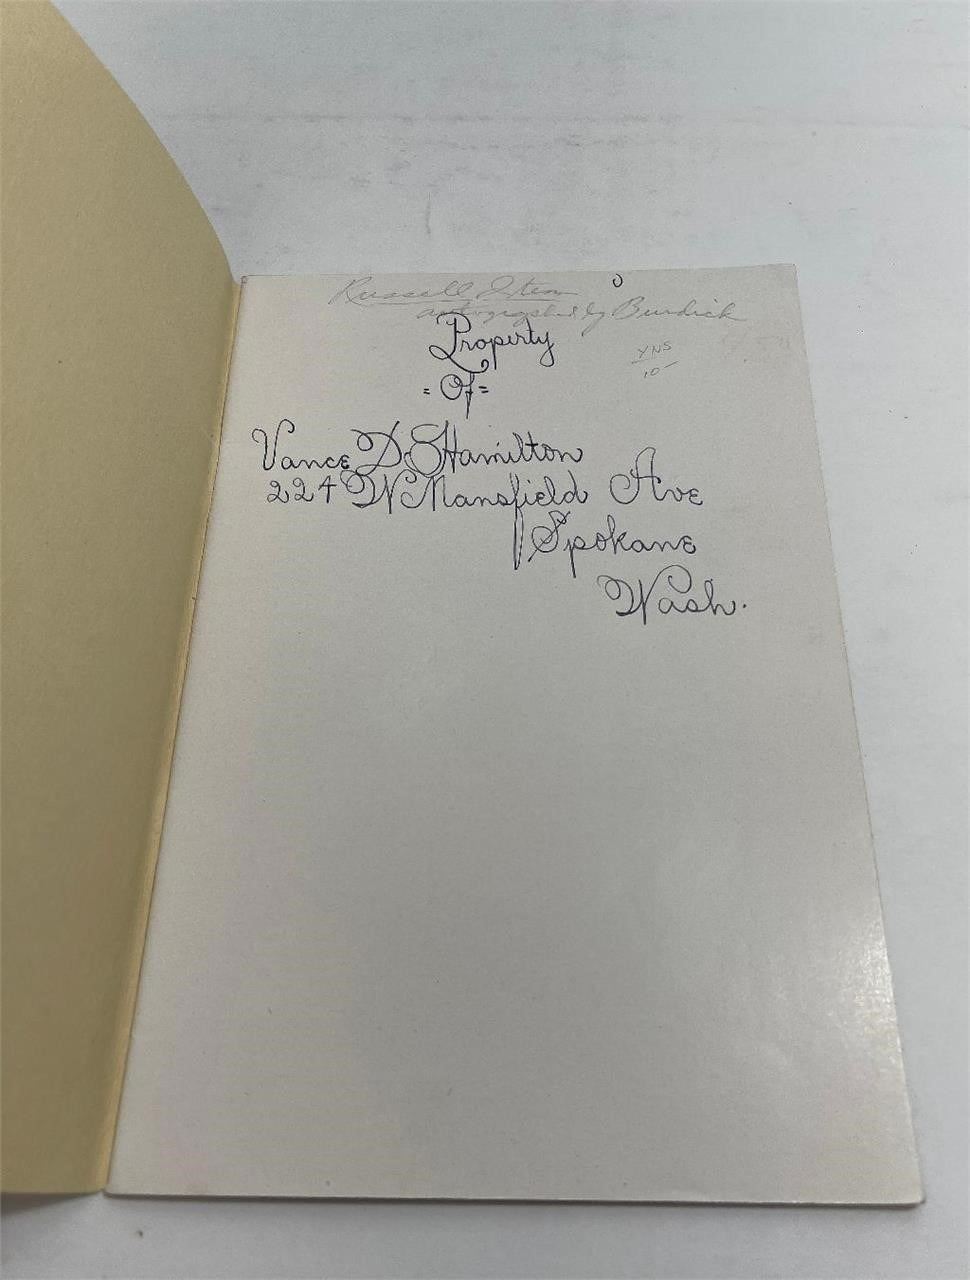 Russell Item
autographed by Burdick
Property
= Of =
YNS
10
Vance D. Hamilton
224 W Mansfield Ave
Spokane
Wash.